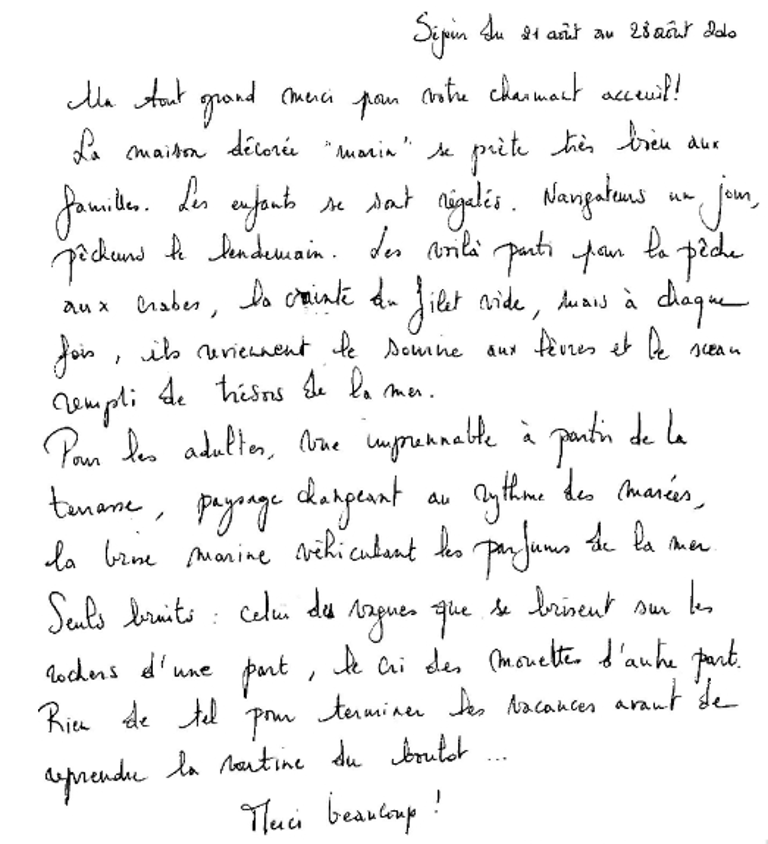 Séjour du 21 août au 28 août 2010
Un tout grand merci pour votre charmant acceuil!
La maison décorée "marin" se prète très bien aux
familles. Les enfants se sont régalés. Navigateurs un jour,
pêcheurs le lendemain. Les voilà parti pour la pêche
aux crabes, la crainte du filet vide, mais à chaque
fois, ils reviennent le sourire aux lèvres et le sceau
rempli de trésors de la mer.
Pour les adultes, vue imprennable à partir de la
terrasse, paysage changeant au rythme des marées,
la brise marine véhiculant les parfums de la mer.
Seuls bruits : celui des vagues que se brisent sur les
rochers d'une part, le cri des mouettes d'autre part.
Rien de tel pour terminer les vacances avant de
reprendre la routine du boulot ...
Merci beaucoup !